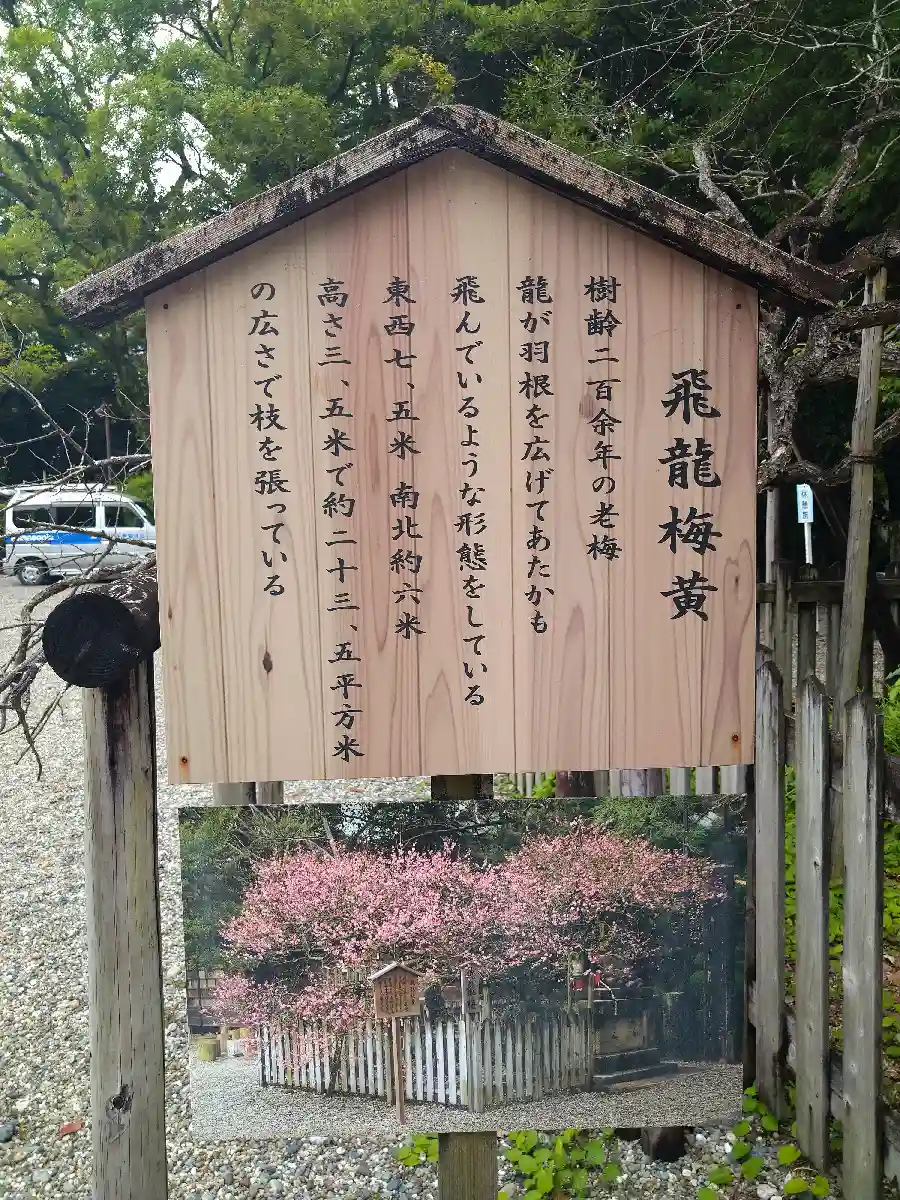 飛龍梅黄
樹齢二百余年の老梅
龍が羽根を広げてあたかも
飛んでいるような形態をしている
東西七、五米 南北約六米
高さ三、五米で約二十三、五平方米
の広さで枝を張っている